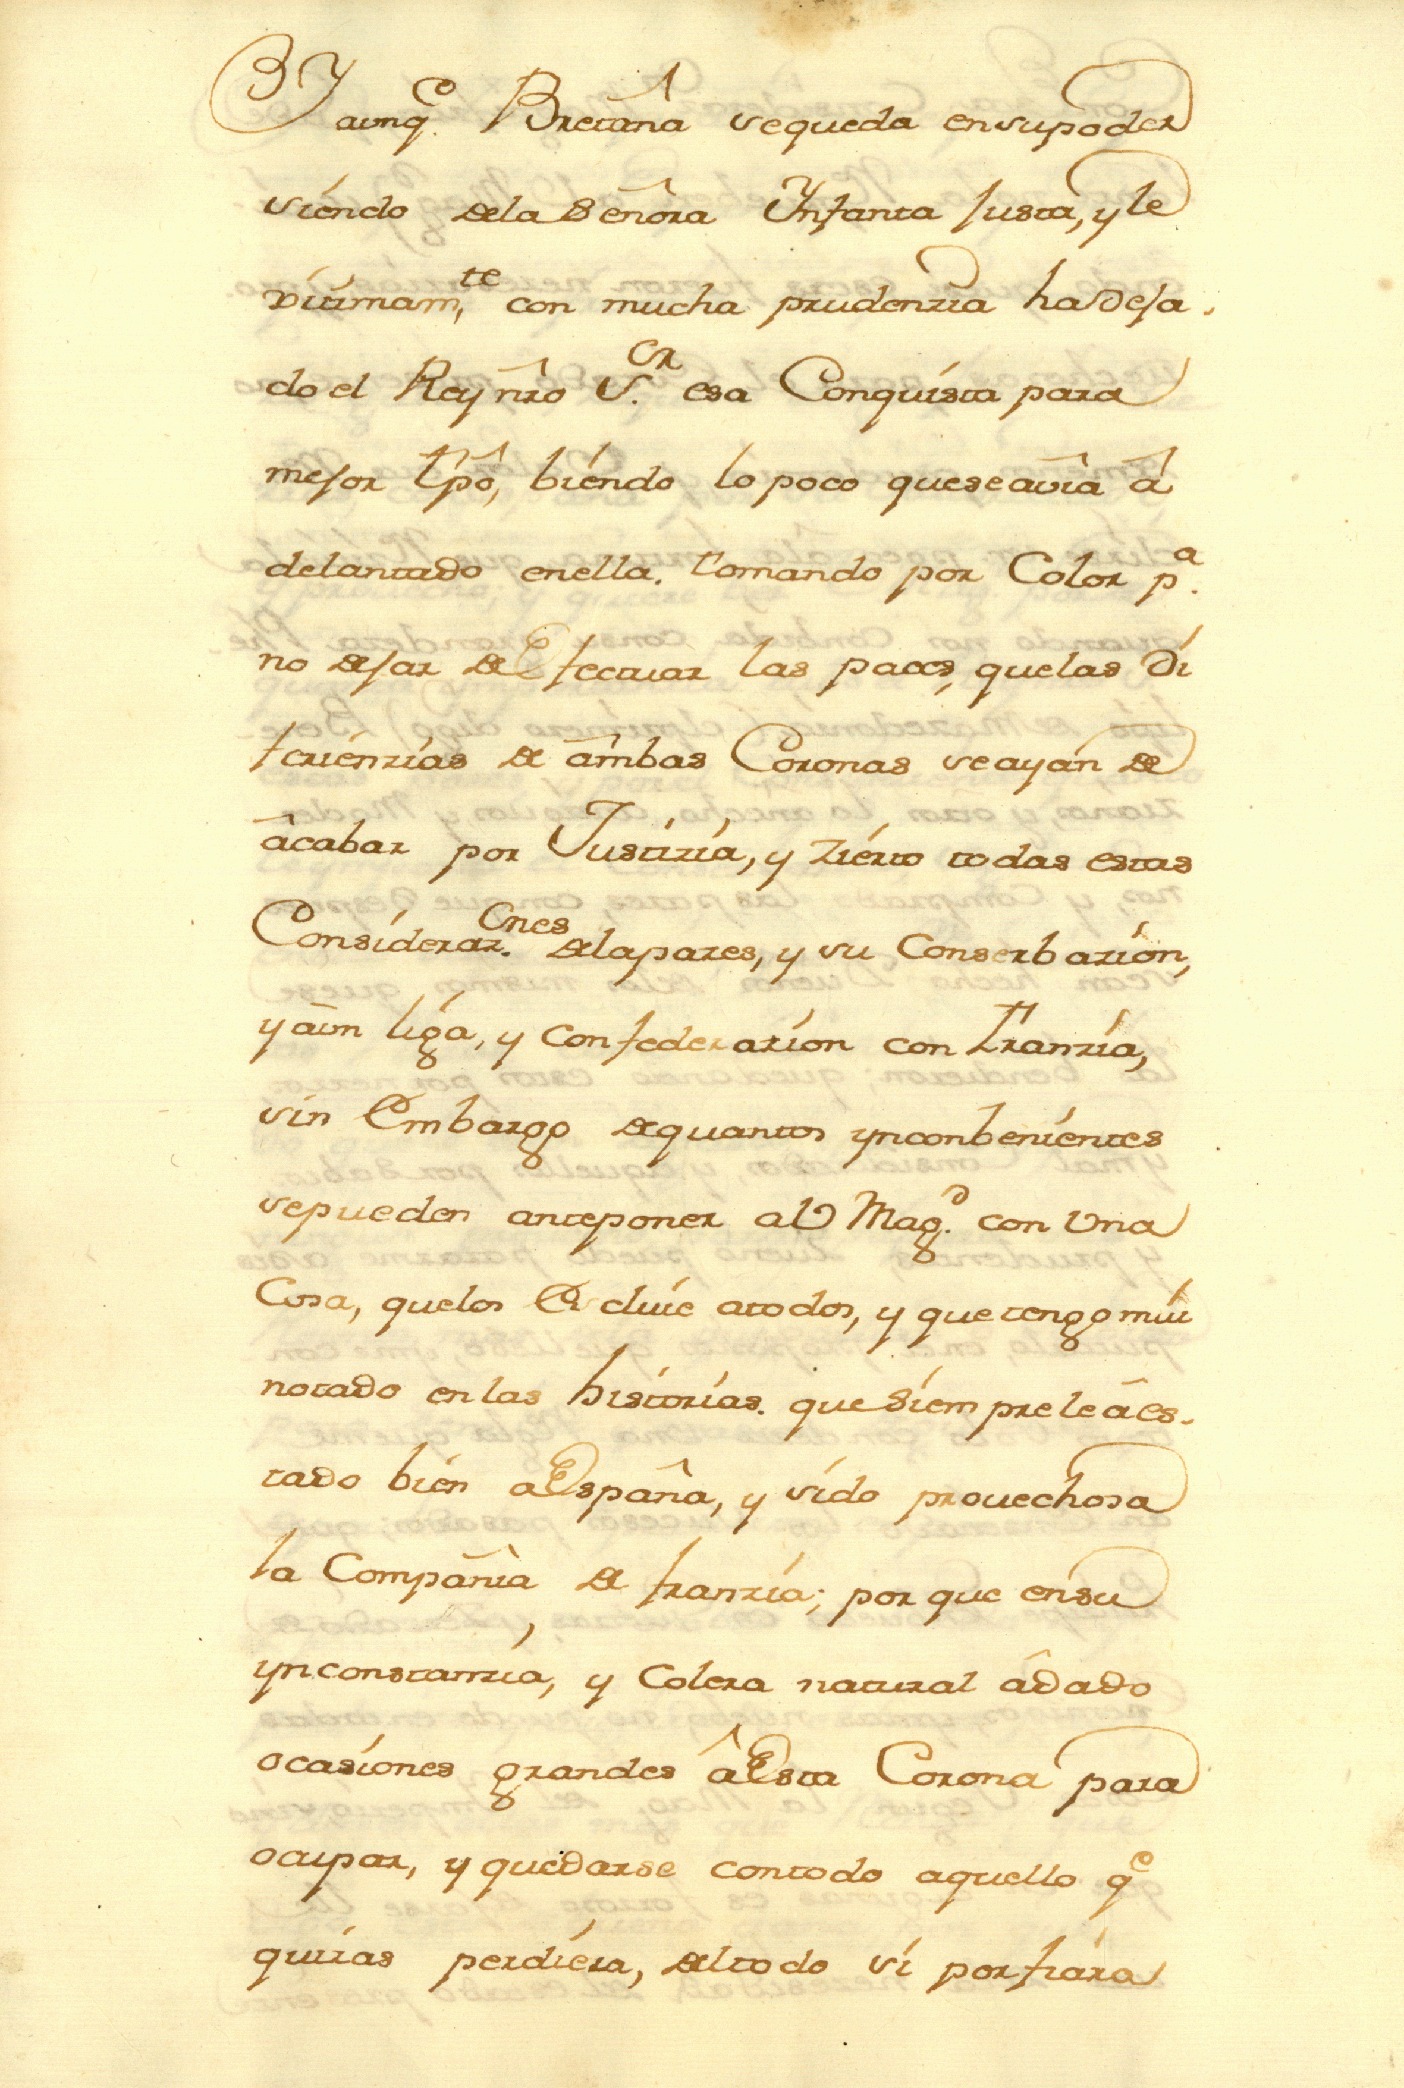 BY aunq.e Bretaña se queda en su poder
siendo de la Señora Ynfanta Justa, y le
xitimam.te con mucha prudenzia ha deja-
do el Rey ñro S.or esa Conquista para
mejor tpô, biendo lo poco que se avia â
delantado en ella. tomando por Color p.a
no dejar de Efectuar las paces, que las di
ferienzias de âmbas Coronas se ayan de
âcabar por Justizia, y zierto todas estas
Consideraz.ones de la pazes, y su Conserbazion,
y aun liga, y Confederazion con franzia,
sin Embargo de quantos ynconbenientes
se pueden anteponer a V Mag.d con Una
Cosa, que los Excluie a todos, y que tengo mui
notado en las historias. que Siempre le â es-
tado bien a España, y sido prouechosa
la Compañia de franzia; por que en su
ynconstanzia, y Colera natural â dado
ocasiones grandes â Esta Corona para
ocupar, y quedarse con todo aquello q.e
quizas perdiera, del todo si porfiara